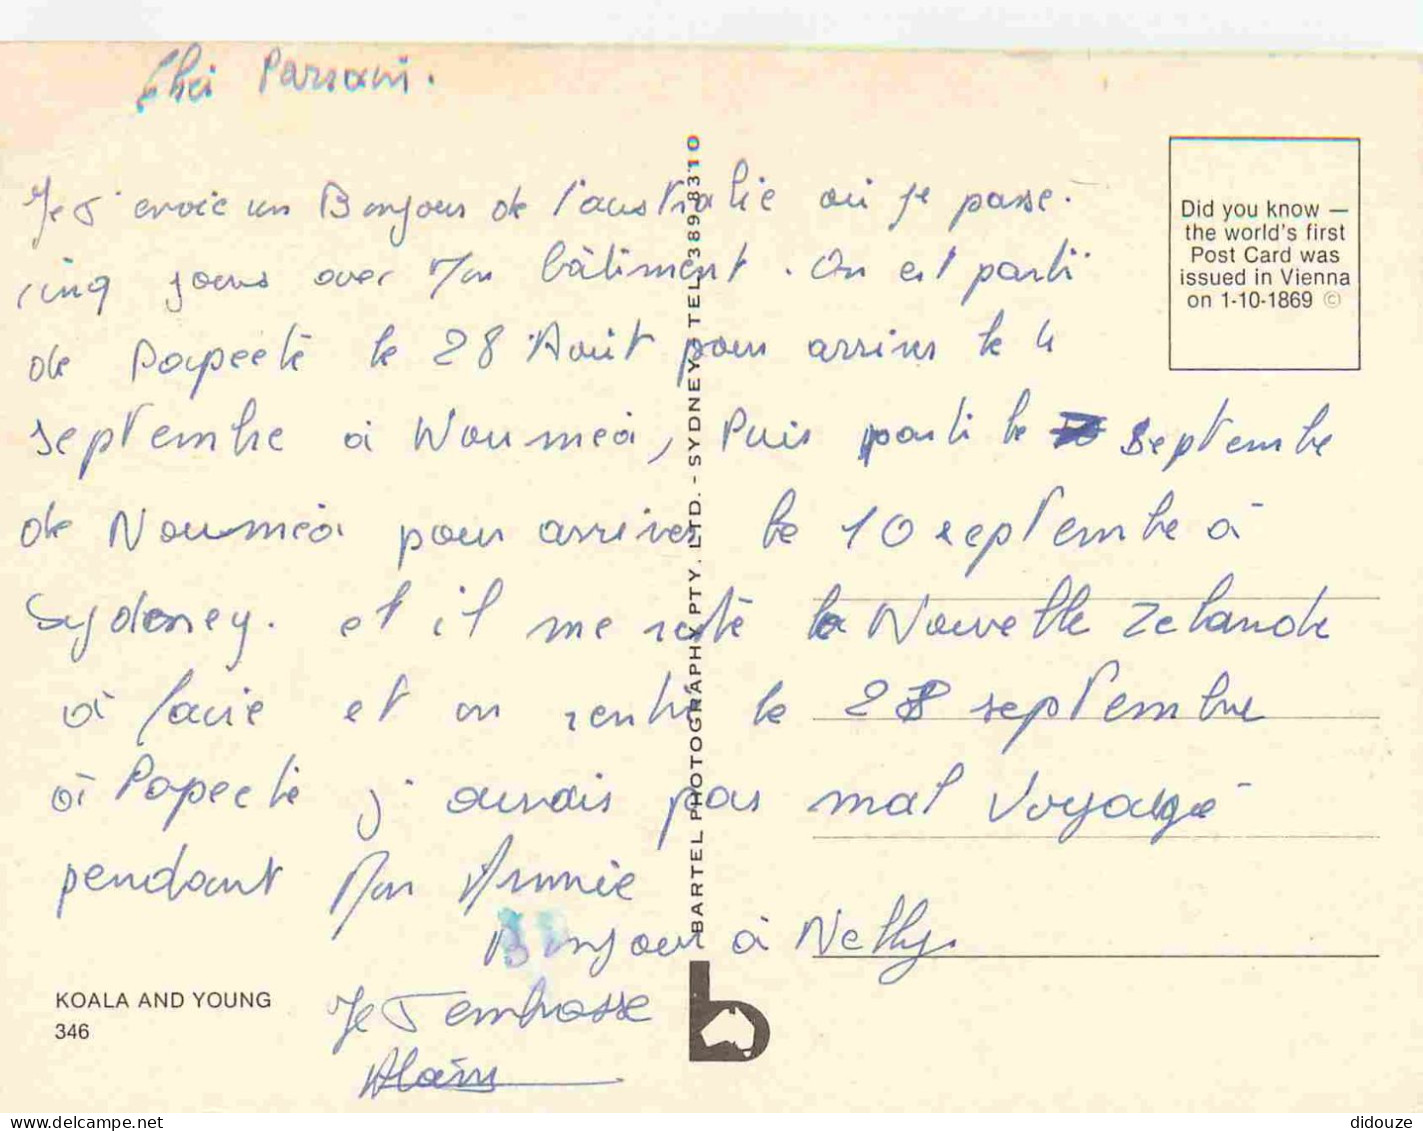 Cher Parrain.
Je t'envoie un Bonjour de l'australie où je passe.
cinq jours avec mon bâtiment. On est parti
de Papeete le 28 Août pour arriver le 4
septembre à Nouméa, Puis parti le septembre
de Nouméa pour arriver le 10 septembre à
Sydney. et il me reste la Nouvelle Zelande
à faire et on rentre le 28 septembre
à Papeete j'aurais pas mal Voyagé
pendant Mon Année
Bonjour à Nelly.
Je T embrasse
Alain
KOALA AND YOUNG
346
BARTEL PHOTOGRAPHY PTY. LTD. - SYDNEY - TEL 389 8310
Did you know —
the world's first
Post Card was
issued in Vienna
on 1-10-1869 ©
b
www.delcampe.net
didouze